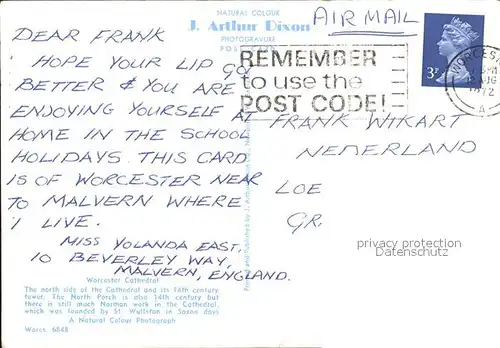 NATURAL COLOUR
J. Arthur Dixon
PHOTOGRAVURE
POST
AIR MAIL
DEAR FRANK
HOPE YOUR LIP GO
BETTER & YOU ARE
ENJOYING YOURSELF AT
HOME IN THE SCHOOL
HOLIDAYS. THIS CARD
IS OF WORCESTER NEAR
TO MALVERN WHERE
I LIVE.
MISS YOLANDA EAST,
10 BEVERLEY WAY,
MALVERN, ENGLAND.
REMEMBER
to use the
POST CODE!
3P
WORCES
AUG
1972
A
FRANK WIKART
NEDERLAND
LOE
GR.
privacy protection
Datenschutz
Printed and Published by J. Arthur Dixon
Worcester Cathedral
The north side of the Cathedral and its 14th century
tower. The North Porch is also 14th century but
there is still much Norman work in the Cathedral,
which was founded by St. Wulfstan in Saxon days
A Natural Colour Photograph
Worcs. 6848